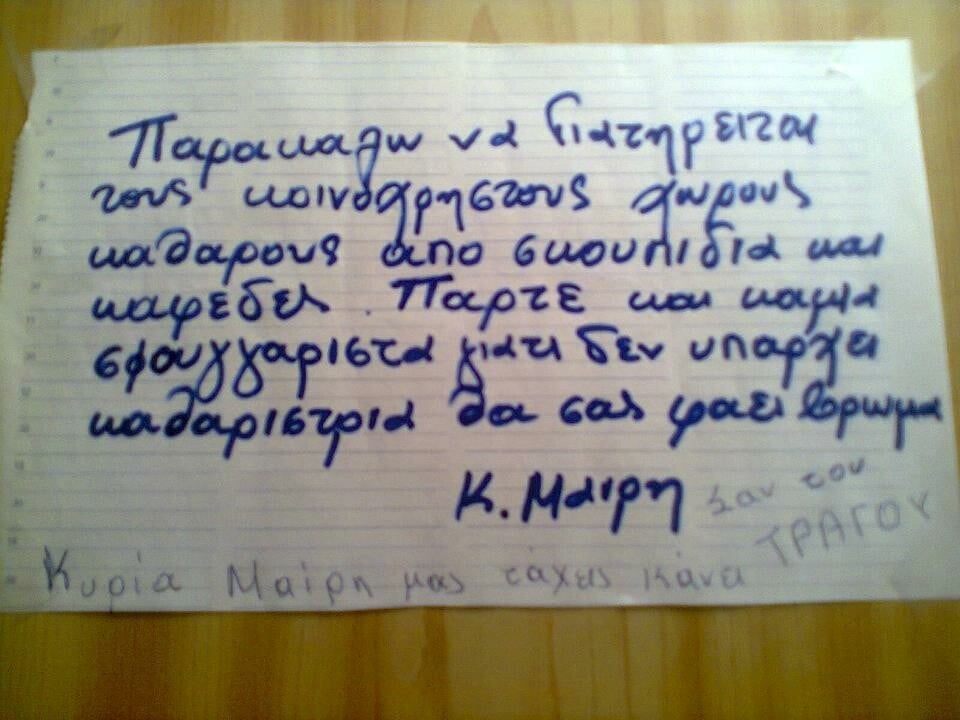 Παρακαλω να διατηρειται
τους κοινοχρηστους χωρους
καθαρους απο σκουπιδια και
καφεδες. Παρτε και καμια
σφουγγαριστα γιατι δεν υπαρχει
καθαριστρια θα σας φαει βρωμα
Κ. Μαιρη
Κυρία Μαίρη μας τάχεις κάνει
Σαν του
ΤΡΑΓΟΥ